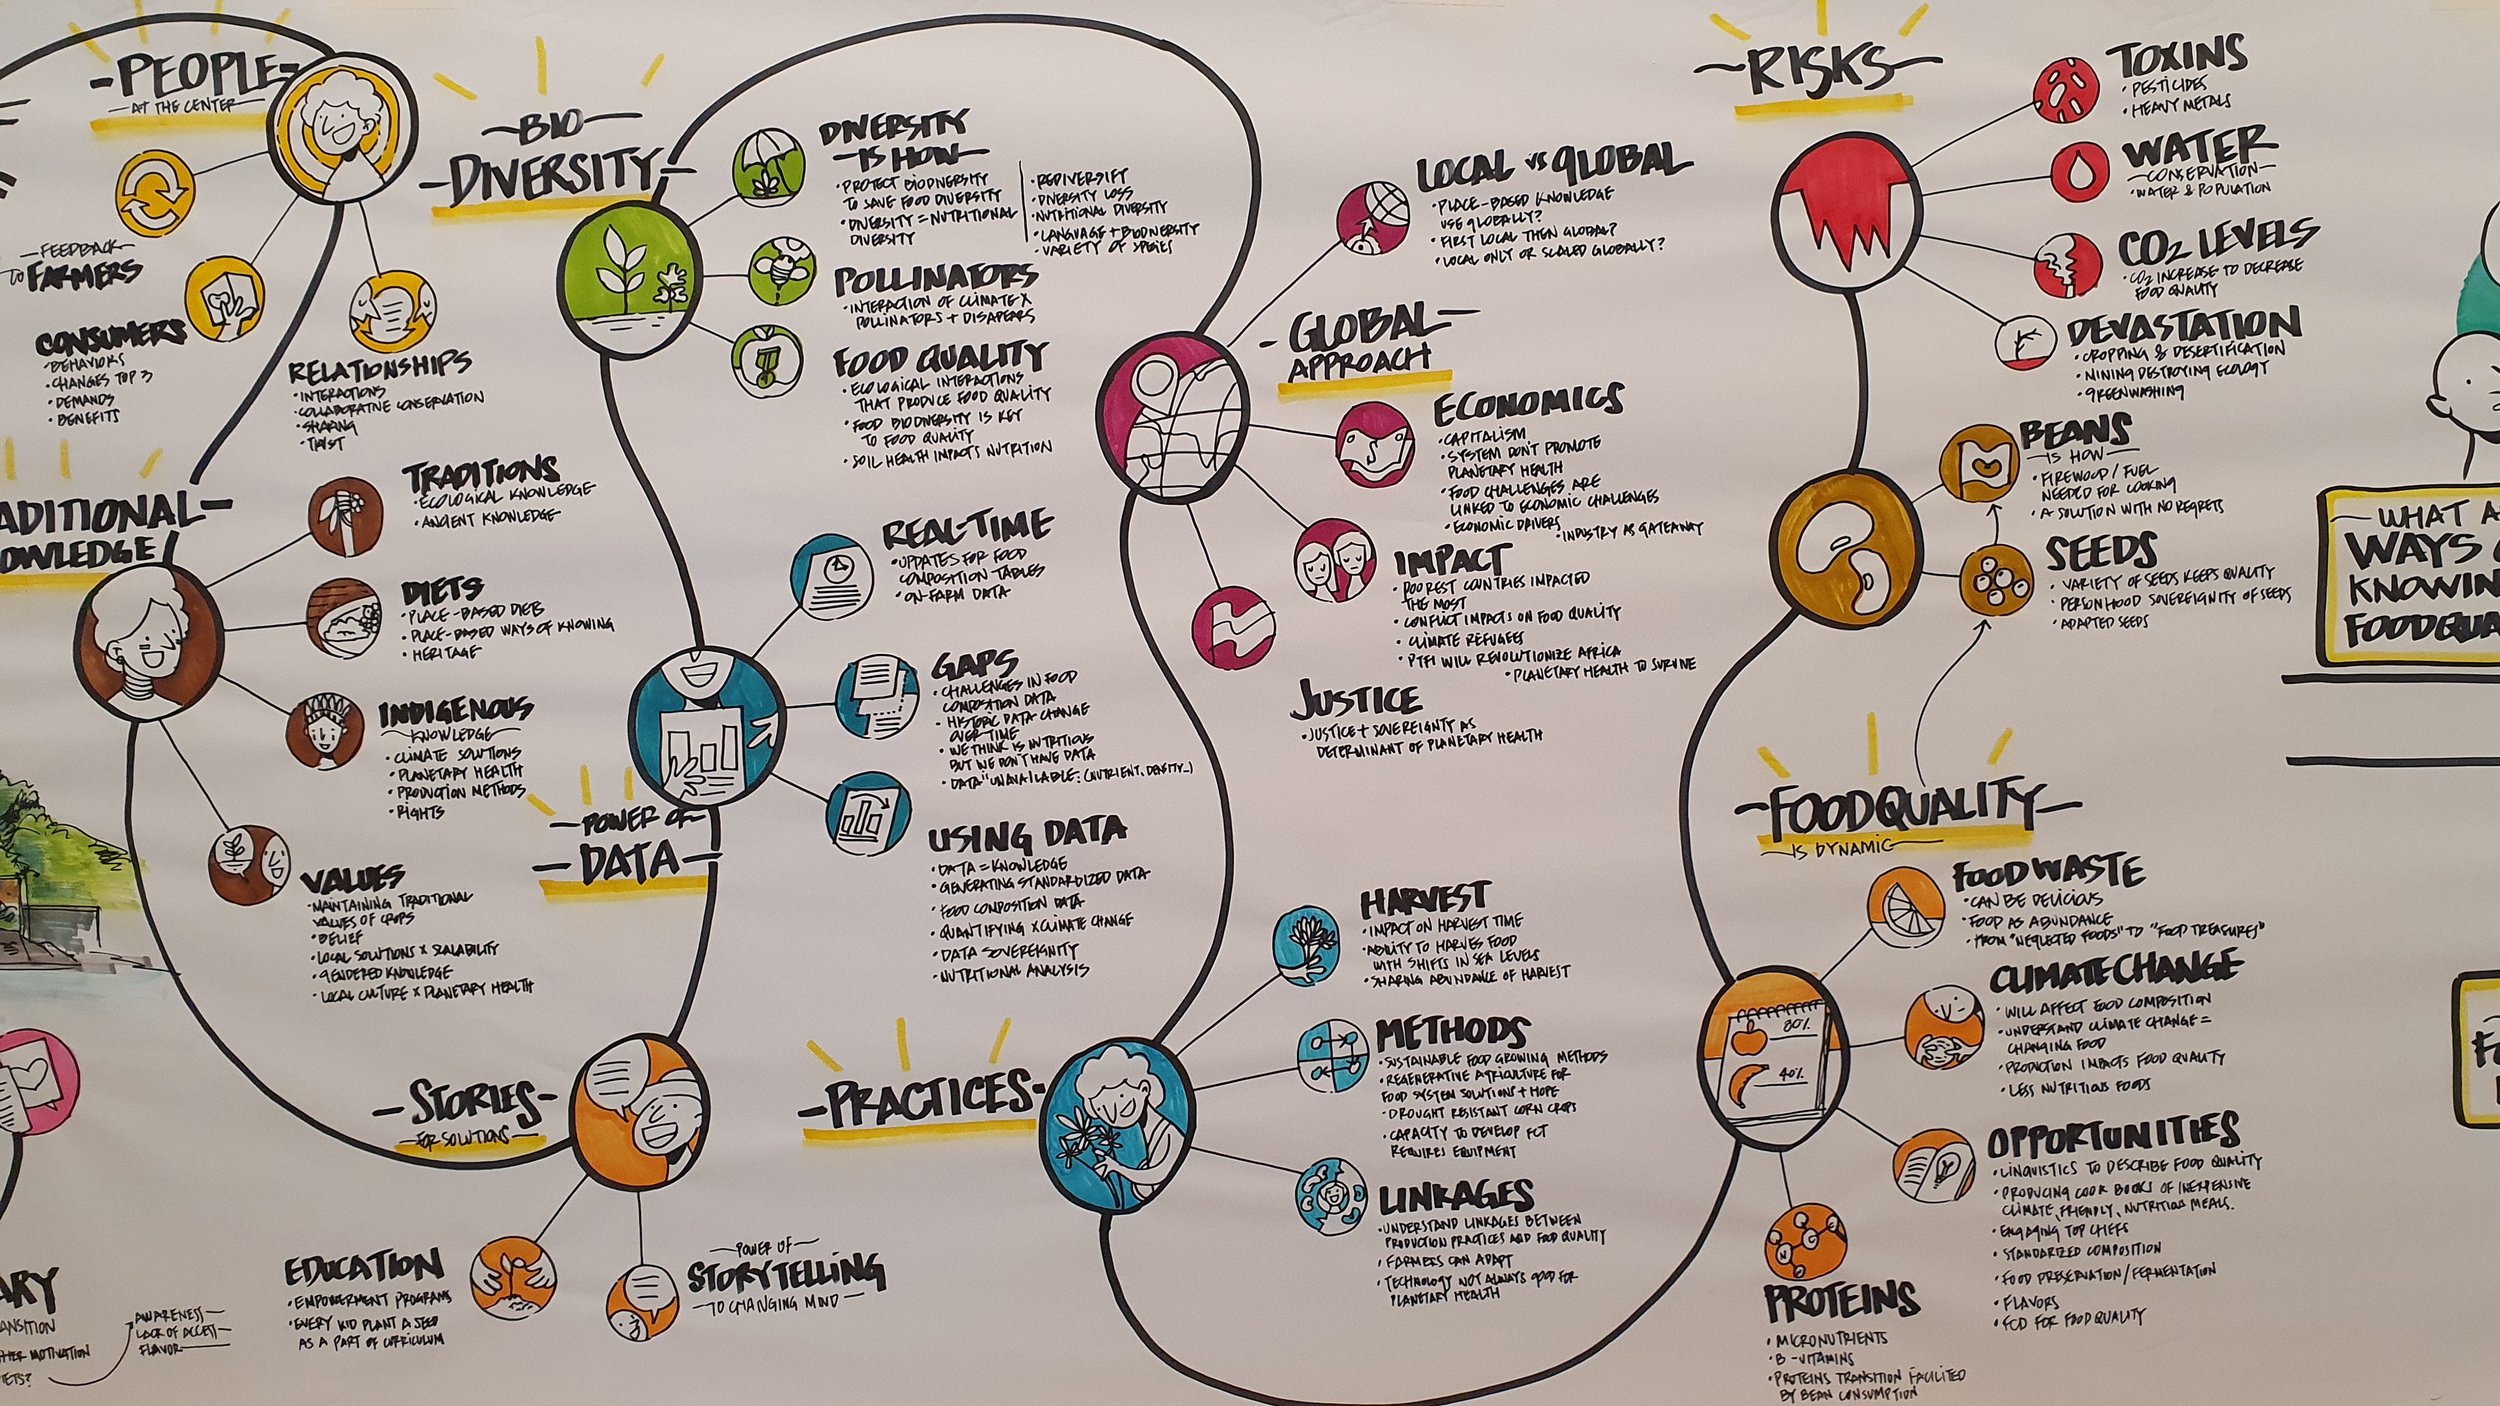 -PEOPLE-
-AT THE CENTER-
-FEEDBACK-
TO FARMERS
CONSUMERS
• BEHAVIORS
• CHANGES TOP 3
• DEMANDS
• BENEFITS
RELATIONSHIPS
• INTERACTIONS
• COLLABORATIVE CONSERVATION
• SHARING
• TRUST
ADITIONAL-
OWLEDGE
TRADITIONS
• ECOLOGICAL KNOWLEDGE
• ANCIENT KNOWLEDGE
DIETS
• PLACE-BASED DIETS
• PLACE-BASED WAYS OF KNOWING
• HERITAGE
INDIGENOUS
-KNOWLEDGE-
• CLIMATE SOLUTIONS
• PLANETARY HEALTH
• PRODUCTION METHODS
• RIGHTS
VALUES
• MAINTAINING TRADITIONAL
VALUES OF CROPS
• BELIEF
• LOCAL SOLUTIONS X SCALABILITY
• GENDERED KNOWLEDGE
• LOCAL CULTURE X PLANETARY HEALTH
-STORIES-
-FOR SOLUTIONS-
EDUCATION
• EMPOWERMENT PROGRAMS
• EVERY KID PLANT A SEED
AS A PART OF CURRICULUM
-POWER OF-
STORYTELLING
-TO CHANGING MIND-
ARY
ANSITION
THER MOTIVATION
IETS?
AWARENESS-
LACK OF ACCESS-
FLAVOR-
-BIO-
-DIVERSITY-
DIVERSITY
-IS HOW-
• PROTECT BIODIVERSITY
TO SAVE FOOD DIVERSITY
• DIVERSITY = NUTRITIONAL
DIVERSITY
• REDIVERSIFY
• DIVERSITY LOSS
• NUTRITIONAL DIVERSITY
• LANGUAGE + BIODIVERSITY
• VARIETY OF SPEIES
POLLINATORS
• INTERACTION OF CLIMATE X
POLLINATORS + DISAPEARS
FOOD QUALITY
• ECOLOGICAL INTERACTIONS
THAT PRODUCE FOOD QUALITY
• FOOD BIODIVERSITY IS KEY
TO FOOD QUALITY
• SOIL HEALTH IMPACTS NUTRITION
-POWER OF-
-DATA-
REAL-TIME
• UPDATES FOR FOOD
COMPOSITION TABLES
• ON-FARM DATA
GAPS
• CHALLENGES IN FOOD
COMPOSITION DATA
• HISTORIC DATA CHANGE
OVER TIME
• WE THINK IS NUTRITIOUS
BUT WE DON'T HAVE DATA
• DATA "UNAVAILABLE: (NUTRIENT, DENSITY_)
USING DATA
• DATA = KNOWLEDGE
• GENERATING STANDARDIZED DATA
• FOOD COMPOSITION DATA
• QUANTIFYING X CLIMATE CHANGE
• DATA SOVEREIGNITY
• NUTRITIONAL ANALYSIS
-GLOBAL-
APPROACH
LOCAL VS GLOBAL
• PLACE-BASED KNOWLEDGE
USE GLOBALLY?
• FIRST LOCAL THEN GLOBAL?
• LOCAL ONLY OR SCALED GLOBALLY?
ECONOMICS
• CAPITALISM
• SYSTEM DON'T PROMOTE
PLANETARY HEALTH
• FOOD CHALLENGES ARE
LINKED TO ECONOMIC CHALLENGES
• ECONOMIC DRIVERS
• INDUSTRY AS GATEWAY
IMPACT
• POOREST COUNTRIES IMPACTED
THE MOST
• CONFLICT IMPACTS ON FOOD QUALITY
• CLIMATE REFUGEES
• PTFI WILL REVOLUTIONIZE AFRICA
• PLANETARY HEALTH TO SURVIVE
JUSTICE
• JUSTICE + SOVEREIGNTY AS
DETERMINANT OF PLANETARY HEALTH
-PRACTICES-
HARVEST
• IMPACT ON HARVEST TIME
• ABILITY TO HARVES FOOD
WITH SHIFTS IN SEA LEVELS
• SHARING ABUNDANCE OF HARVEST
METHODS
• SUSTAINABLE FOOD GROWING METHODS
• REGENERATIVE AGRICULTURE FOR
FOOD SYSTEM SOLUTIONS + HOPE
• DROUGHT RESISTANT CORN CROPS
• CAPACITY TO DEVELOP FCT
REQUIRES EQUIPMENT
LINKAGES
• UNDERSTAND LINKAGES BETWEEN
PRODUCTION PRACTICES AND FOOD QUALITY
• FARMERS CAN ADAPT
• TECHNOLOGY NOT ALWAYS GOOD FOR
PLANETARY HEALTH
-RISKS-
TOXINS
• PESTICIDES
• HEAVY METALS
WATER
-CONSERVATION-
• WATER & POPULATION
CO2 LEVELS
• CO2 INCREASE TO DECREASE
FOOD QUALITY
DEVASTATION
• CROPPING & DESERTIFICATION
• MINING DESTROYING ECOLOGY
• GREENWASHING
BEANS
-IS HOW-
• FIREWOOD / FUEL
NEEDED FOR COOKING
• A SOLUTION WITH NO REGRETS
SEEDS
• VARIETY OF SEEDS KEEPS QUALITY
• PERSONHOOD SOVEREIGNITY OF SEEDS
• ADAPTED SEEDS
-FOOD QUALITY-
-IS DYNAMIC-
80%
40%
FOOD WASTE
• CAN BE DELICIOUS
• FOOD AS ABUNDANCE
• FROM "NEGLECTED FOODS" TO "FOOD TREASURES"
CLIMATE CHANGE
• WILL AFFECT FOOD COMPOSITION
• UNDERSTAND CLIMATE CHANGE =
CHANGING FOOD
• PRODUCTION IMPACTS FOOD QUALITY
• LESS NUTRITIOUS FOODS
OPPORTUNITIES
• LINGUISTICS TO DESCRIBE FOOD QUALITY
• PRODUCING COOK BOOKS OF INEXPENSIVE
CLIMATE, FRIENDLY, NUTRITIOUS MEALS.
• ENGAGING TOP CHEFS
• STANDARTIZED COMPOSITION
• FOOD PRESERVATION / FERMENTATION
• FLAVORS
• FCD FOR FOOD QUALITY
PROTEINS
• MICRONUTRIENTS
• B-VITAMINS
• PROTEINS TRANSITION FACILITED
BY BEAN CONSUMPTION
-WHAT A
WAYS
KNOWIN
FOOD QUA